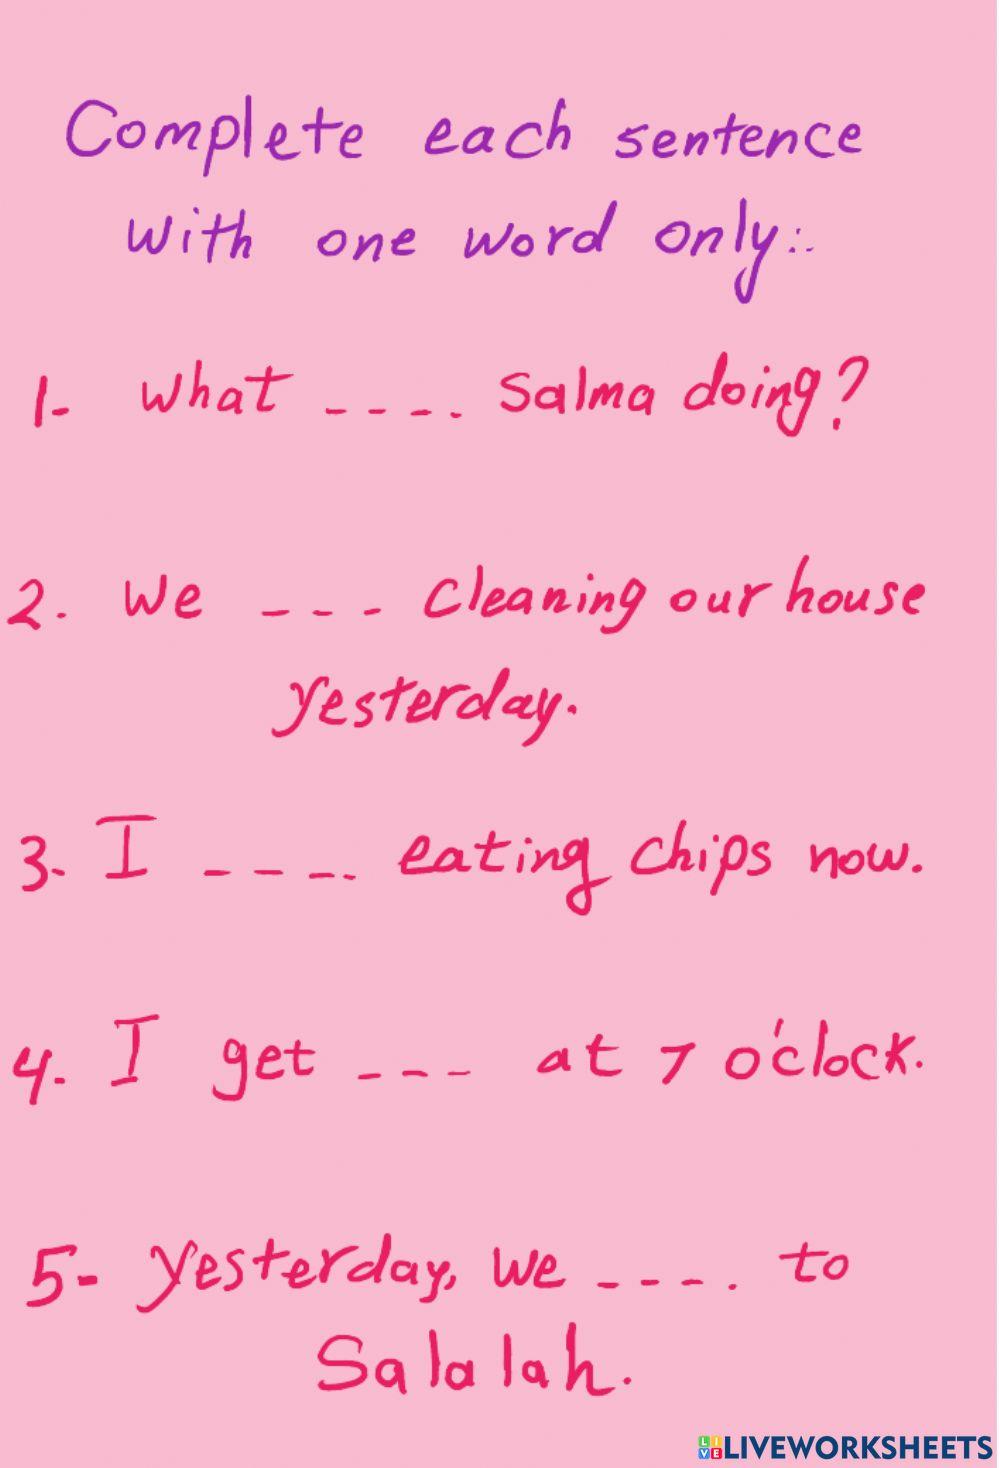 Complete each sentence
with one word only:.
1- What ----. Salma doing?
2. We --- cleaning our house
yesterday.
3. I ----. eating chips now.
4. I get --- at 7 o'clock.
5- Yesterday, we ----. to
Salalah.
LIVEWORKSHEETS